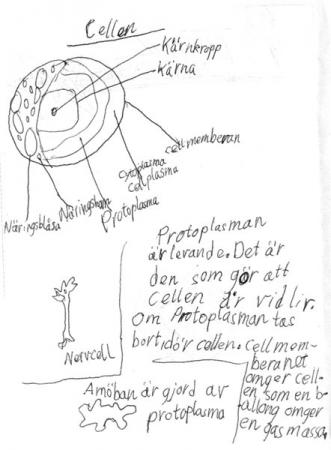 Cellen
Kärnkropp
Kärna
cellmemberan
cytoplasma
cellplasma
Protoplasma
Näringsblåsa
Protoplasman
är levande. Det är
den som gör att
cellen är vid liv.
Om Protoplasman tas
bort dör cellen.
Cellmem-
beranet
omger cell-
en som en b-
allong omger
en gasmassa.
Nervcell
Amöban är gjord av
protoplasma